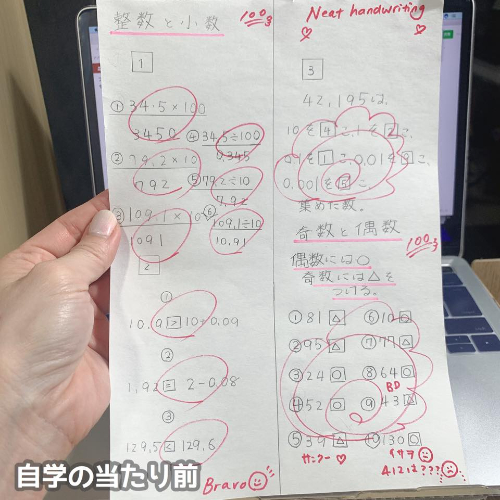 整数と小数
100点
1
① 34.5×100
3450
② 79.2×10
792
③ 109.1×10
1091
④ 34.5÷100
0.345
⑤ 79.2÷10
7.92
⑥ 109.1÷10
10.91
2
①
10.9 > 10+0.09
②
1.92 = 2-0.08
③
129.5 < 129.6
Bravo
Neat handwriting
3
42.195は、
10を4こ、1を2こ、
0.1を1こ、0.01を9こ、
0.001を5こ、
集めた数。
奇数と偶数
100点
偶数には○
奇数には△を
つける。
① 81 △
② 95 △
③ 24 ○
④ 52 ○
⑤ 39 △
⑥ 10 ○
⑦ 77 △
⑧ 64 ○
BD
⑨ 43 △
⑩ 130 ○
サンクー
イサヲ
41212???
自学の当たり前